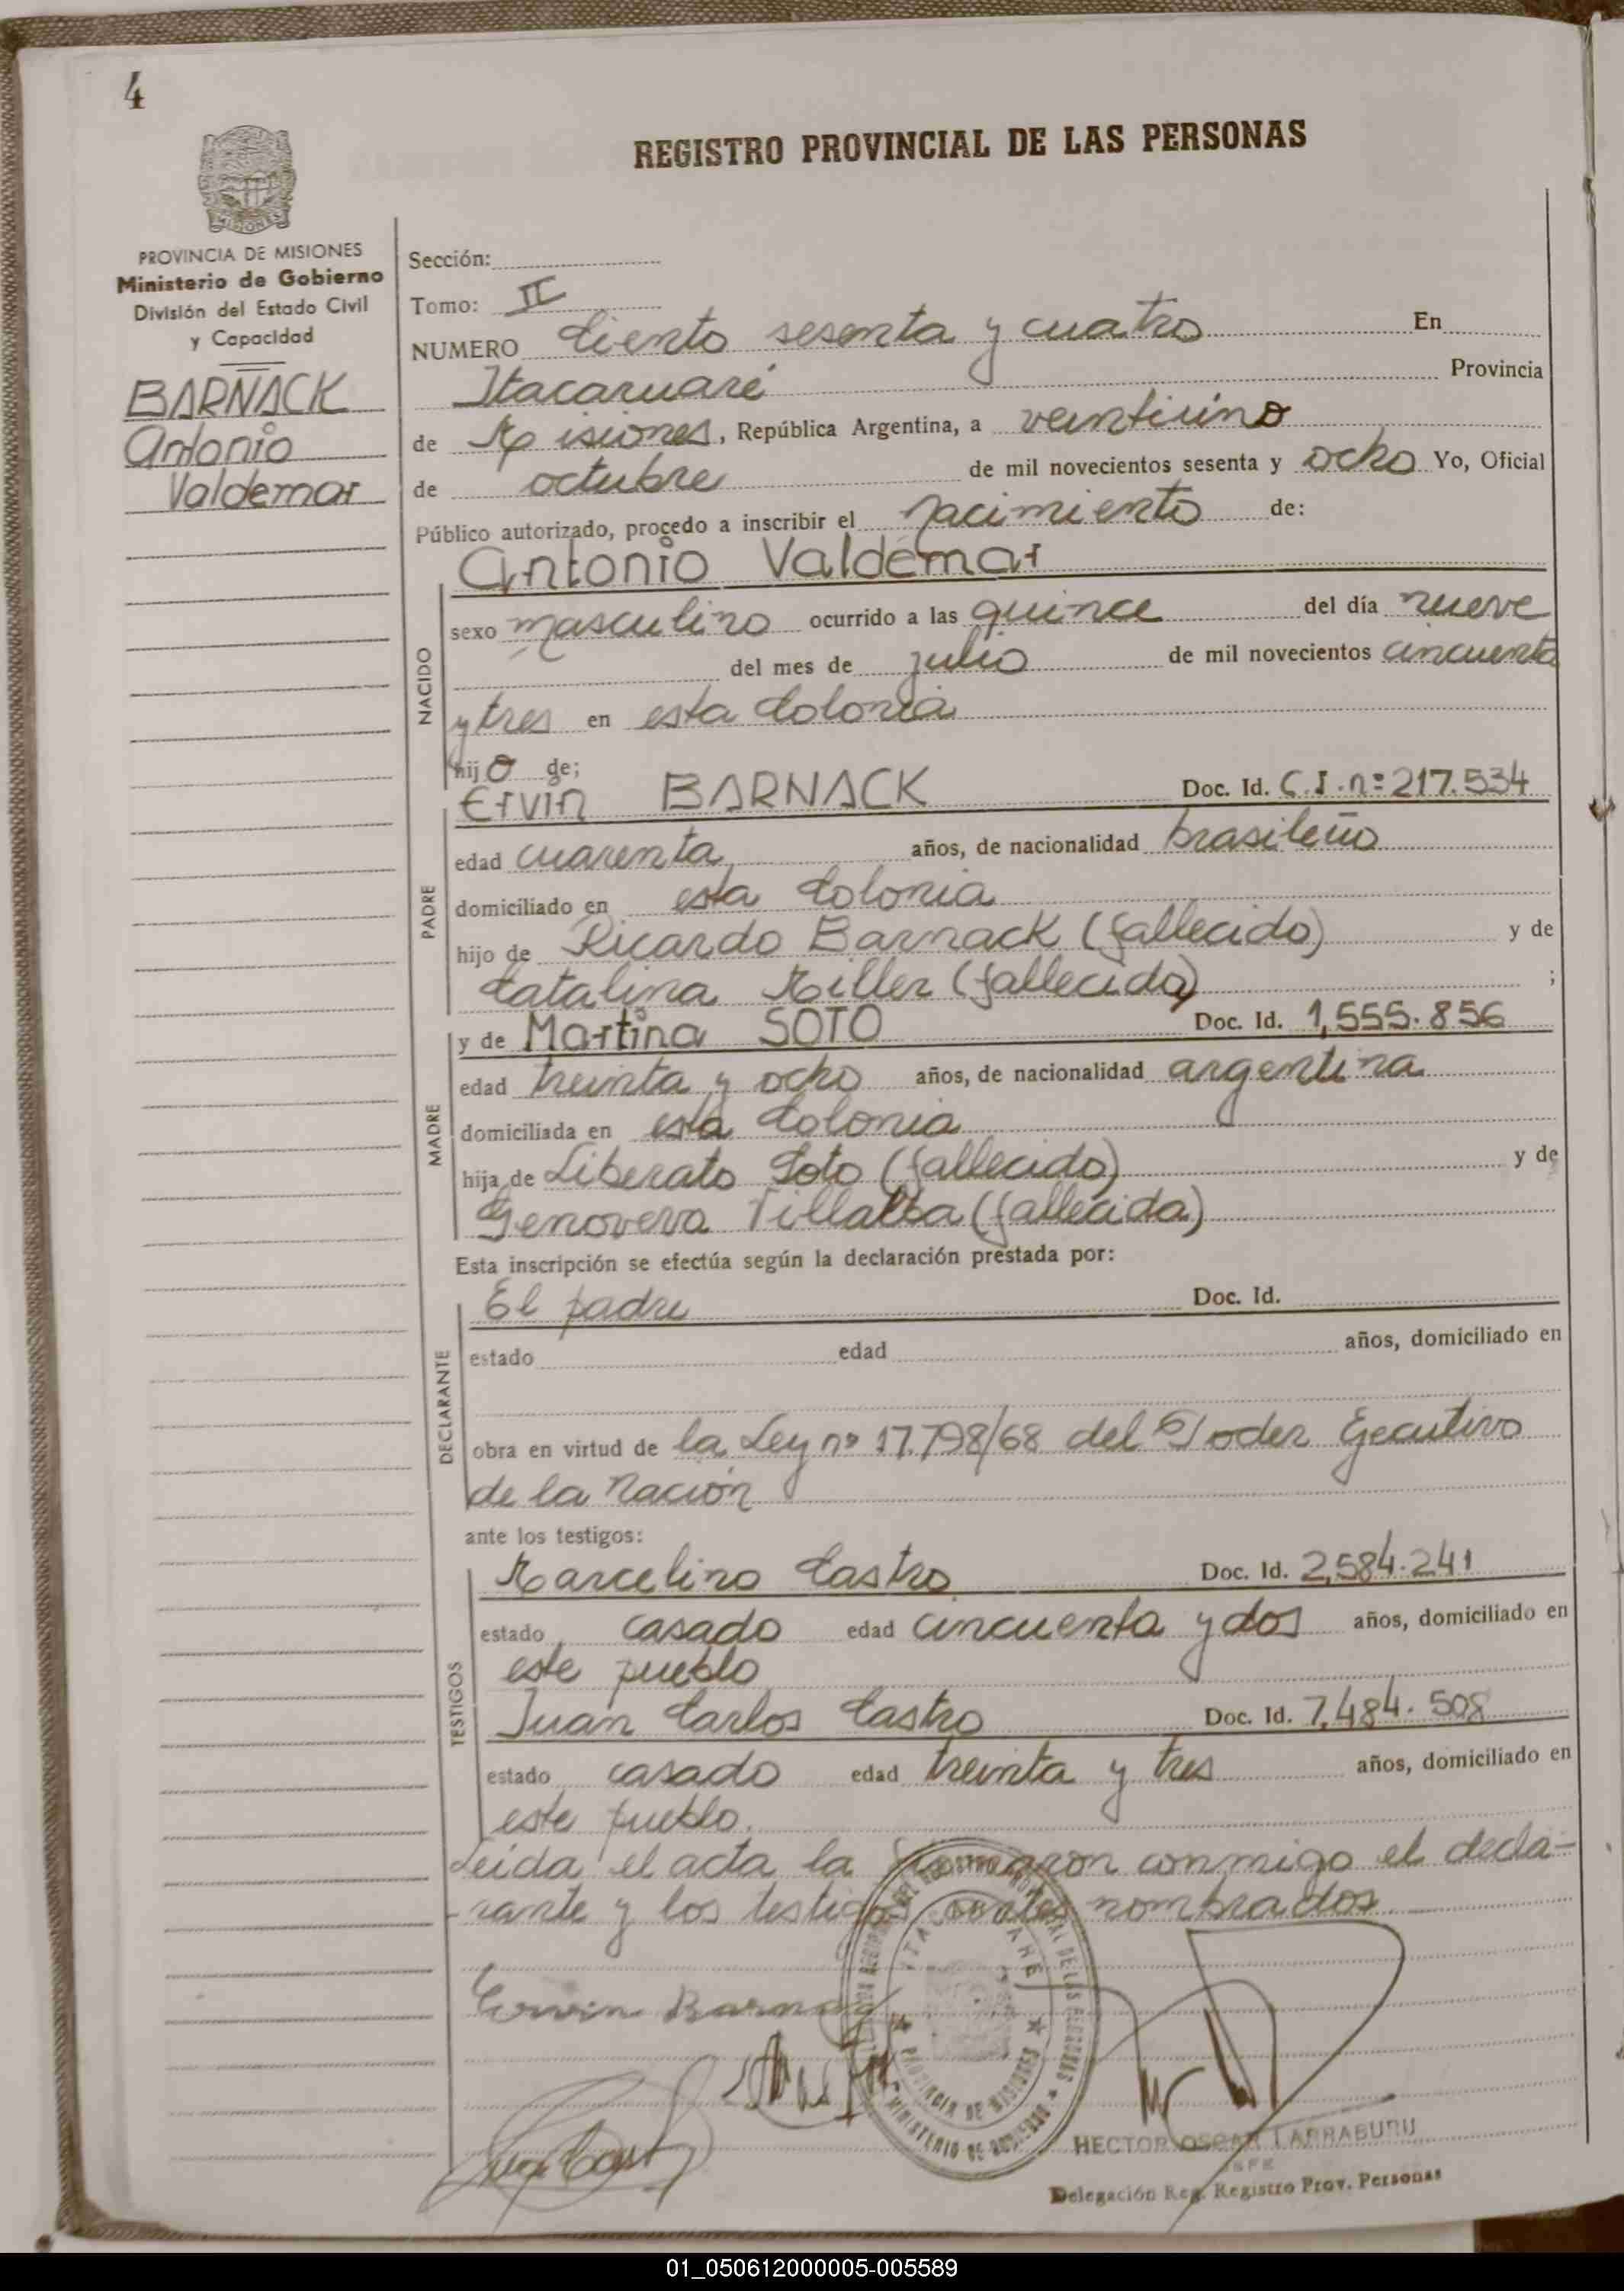 4
REGISTRO PROVINCIAL DE LAS PERSONAS
MISIONES
PROVINCIA DE MISIONES
Ministerio de Gobierno
División del Estado Civil
y Capacidad
BARNACK
Antonio
Valdemar
Sección:
Tomo: II
NUMERO Ciento sesenta y cuatro En
Itacaruaré Provincia
de Misiones, República Argentina, a veintiuno
de octubre de mil novecientos sesenta y ocho Yo, Oficial
Público autorizado, procedo a inscribir el nacimiento de:
NACIDO
Antonio Valdemar
sexo masculino ocurrido a las quince del día nueve
del mes de julio de mil novecientos cincuenta
y tres en esta Colonia
hijo de;
PADRE
Ervin BARNACK Doc. Id. C.I.nº 217.534
edad cuarenta años, de nacionalidad brasileño
domiciliado en esta Colonia
hijo de Ricardo Barnack (fallecido) y de
Catalina Miller (fallecida) ;
MADRE
y de Martina SOTO Doc. Id. 1,555.856
edad treinta y ocho años, de nacionalidad argentina
domiciliada en esta Colonia
hija de Liberato Soto (fallecido) y de
Genoveva Villalba (fallecida)
Esta inscripción se efectúa según la declaración prestada por:
DECLARANTE
El padre Doc. Id.
estado edad años, domiciliado en
obra en virtud de la Ley nº 17.798/68 del Poder Ejecutivo
de la Nación
ante los testigos:
TESTIGOS
Marcelino Castro Doc. Id. 2,584.241
estado casado edad cincuenta y dos años, domiciliado en
este pueblo
Juan Carlos Castro Doc. Id. 7,484.508
estado casado edad treinta y tres años, domiciliado en
este pueblo.
Leída el acta la firmaron conmigo el decla-
-rante y los testigos antes nombrados
Erwin Barnack
ITACARUARE
PROVINCIA DE MISIONES
MINISTERIO DE GOBIERNO
HECTOR OSCAR LARRABURU
JEFE
Delegación Reg. Registro Prov. Personas
01_050612000005-005589